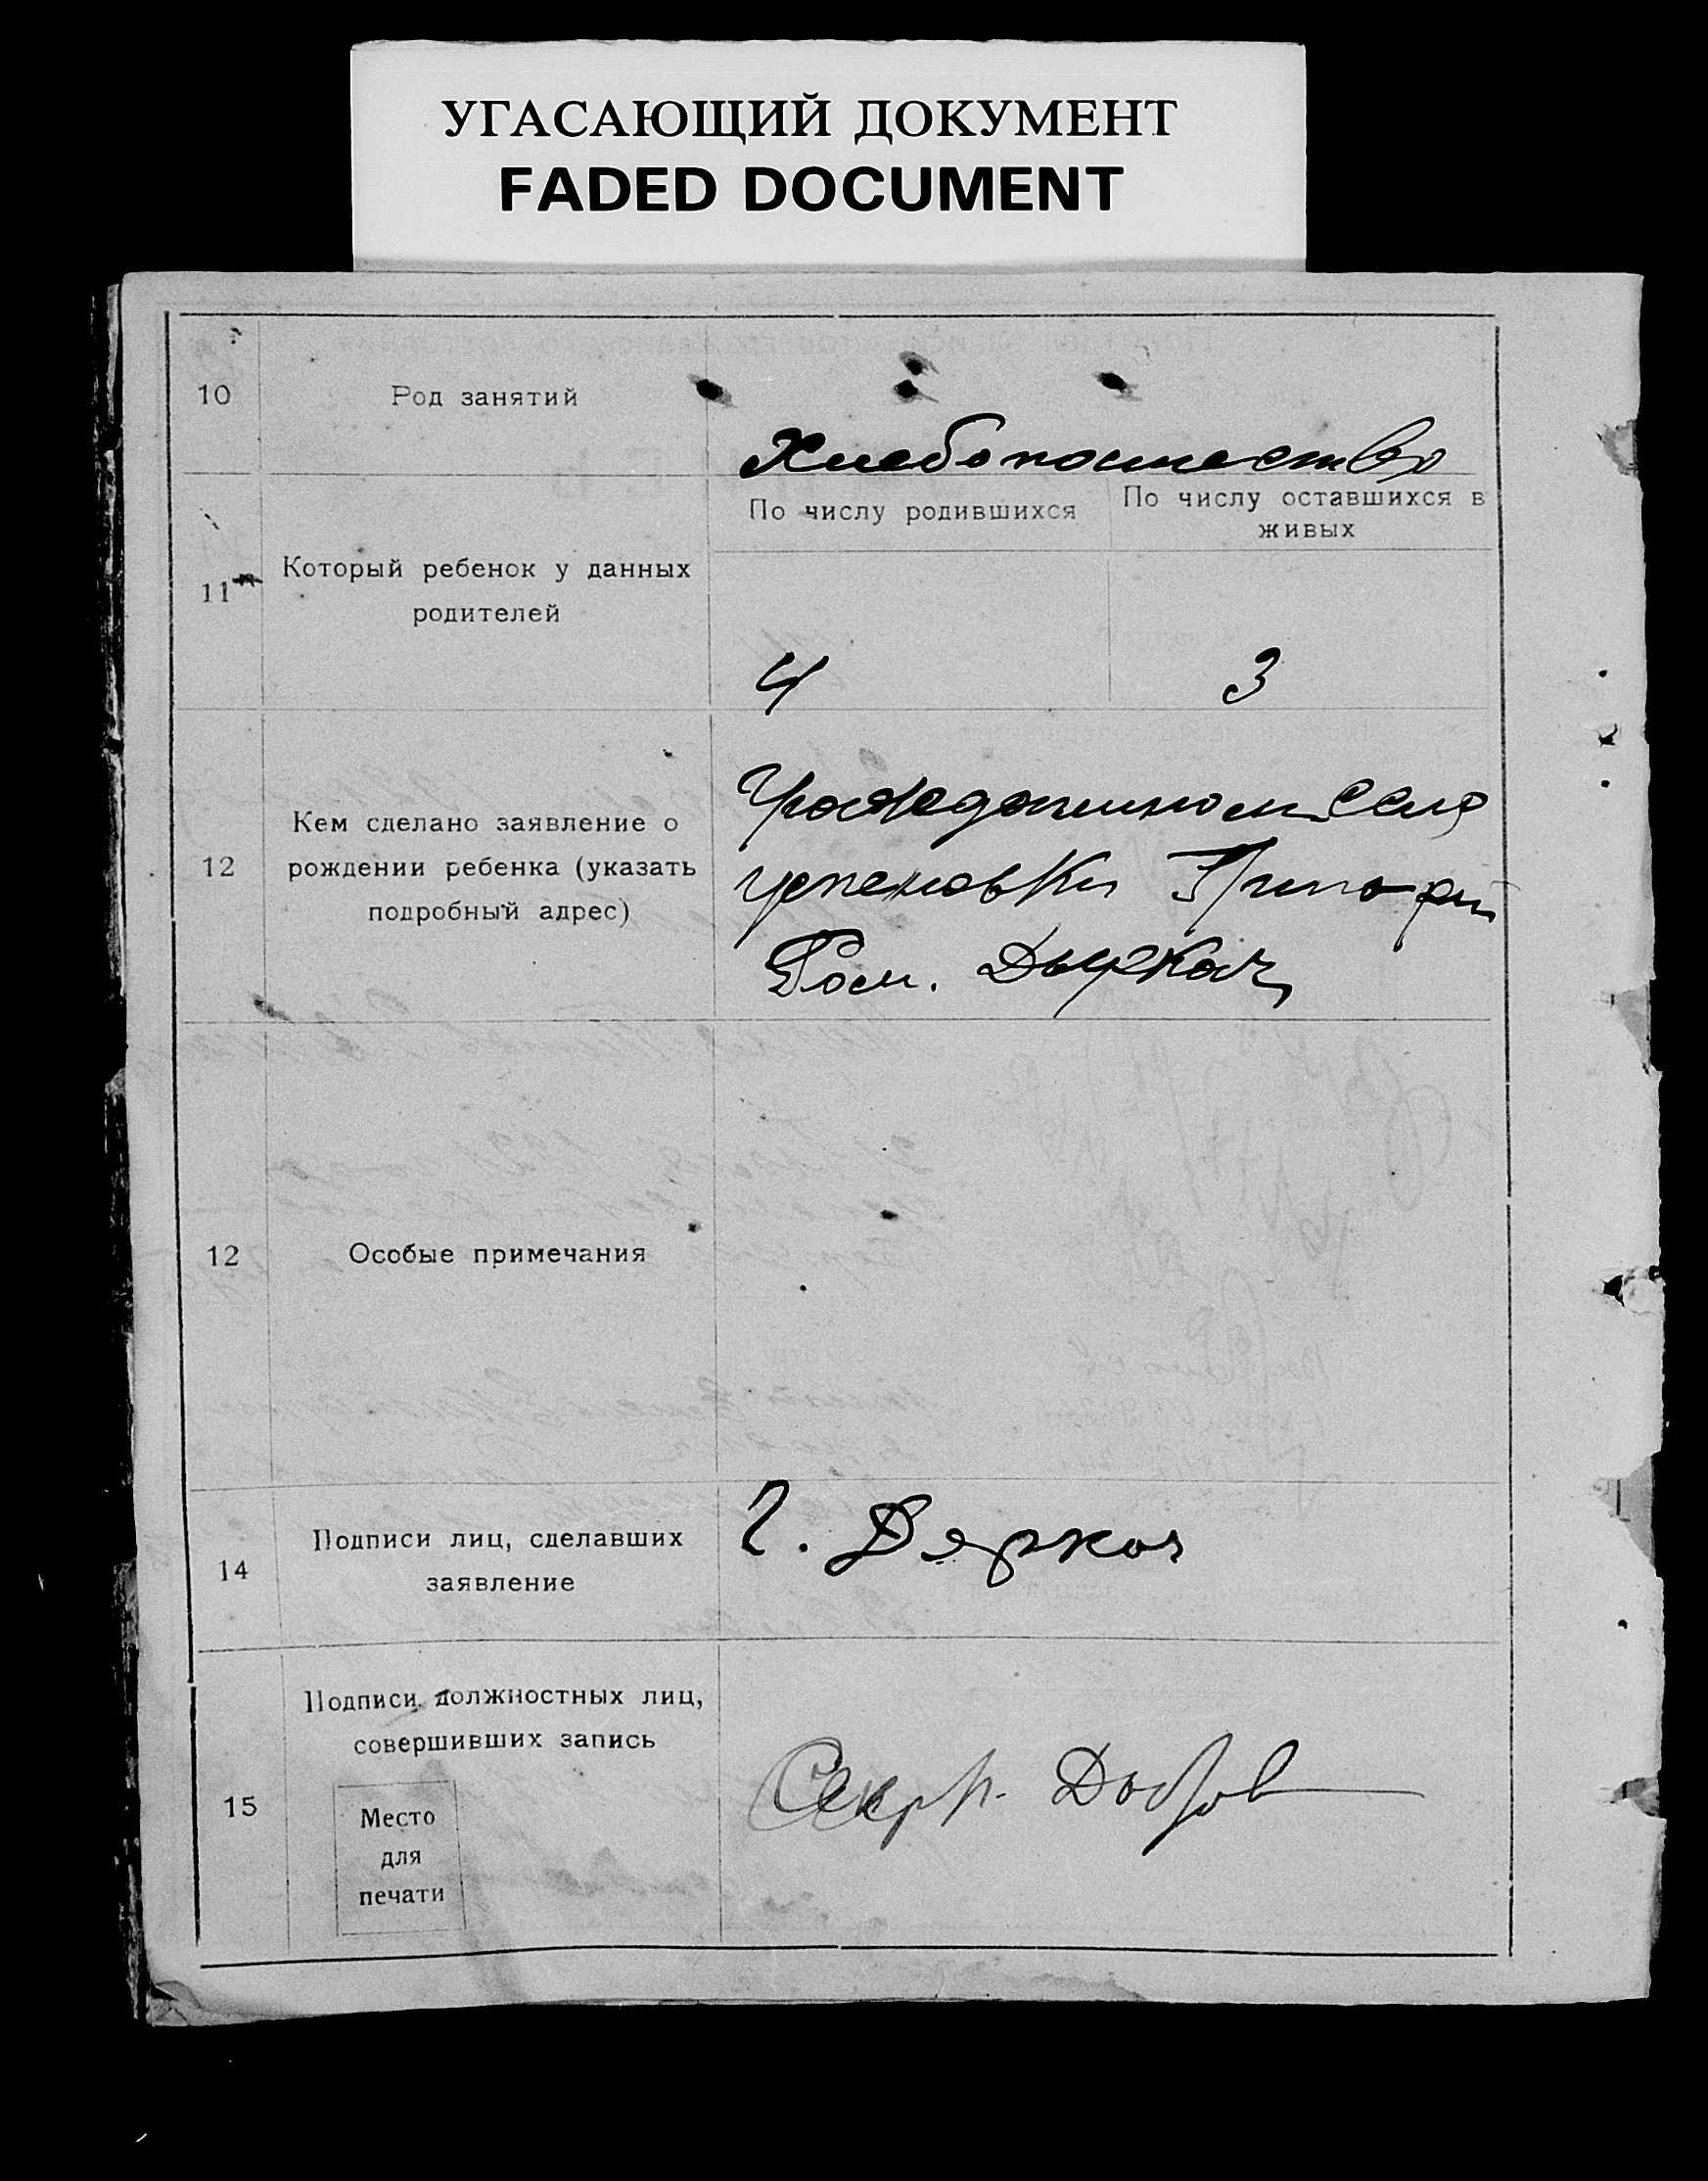 УГАСАЮЩИЙ ДОКУМЕНТ
FADED DOCUMENT
10
Род занятий
Хлебопашество
11
Который ребенок у данных
родителей
По числу родившихся
По числу оставшихся в
живых
4
3
12
Кем сделано заявление о
рождении ребенка (указать
подробный адрес)
Гражданином села
Успеновки Григорий
Ром. Дыркач
12
Особые примечания
14
Подписи лиц, сделавших
заявление
Г. Дяркач
15
Подписи должностных лиц,
совершивших запись
Место
для
печати
Секр.